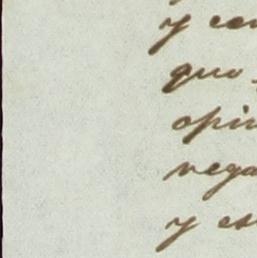 y con
quo
opin
rega
y es